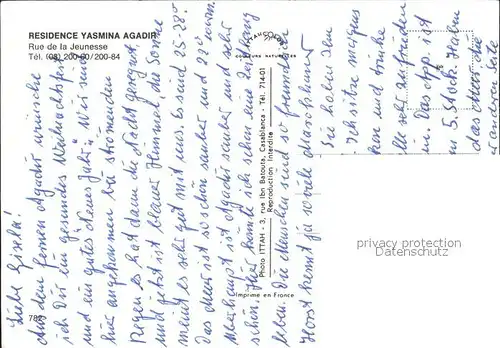 RESIDENCE YASMINA AGADIR
Rue de la Jeunesse
Tél. (08) 200-80/200-84
COULEURS NATURELLES
Photo ITTAH - 3, rue Ibn Batouta, Casablanca - Tél. 714-01
Reproduction Interdite
Imprimé en France
782
privacy protection
watermark
Liebe Gisela!
Aus dem fernen Agadir wünsche
ich Dir ein gesundes Weihnachtsfest
und ein gutes neues Jahr! Wir sind
hier angekommen bei strömenden
Regen es hat dann die Nacht geregnet,
und jetzt ist blauer Himmel, die Sonne
meint es sehr gut mit uns. Es sind 25-28°
Das Meer ist so schön sauber und 20° warm.
Überhaupt ist Agadir sauber und sehr
schön. Hier könnte ich schon eine Zeitlang
leben. Die Menschen sind so freundlich
Horst kommt ja so viele
Sie holen den
Ich sitze
und trinke
alle sehr zufrieden
Das App. ist
im 5. Stock. Haben
das Meer die